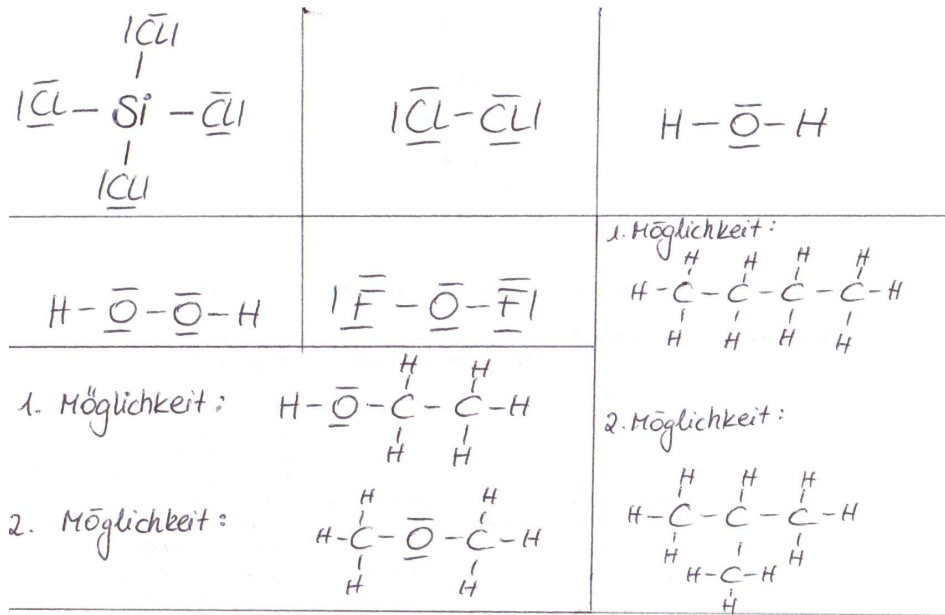 |Cl|
|Cl – Si – Cl|
|Cl|
|Cl – Cl|
H – O – H
H – O – O – H
|F – O – F|
1. Möglichkeit:
H H H H
H – C – C – C – C – H
H H H H
1. Möglichkeit:
H H
H – O – C – C – H
H H
2. Möglichkeit:
H H
H – C – O – C – H
H H
2. Möglichkeit:
H H H
H – C – C – C – H
H H
H – C – H
H